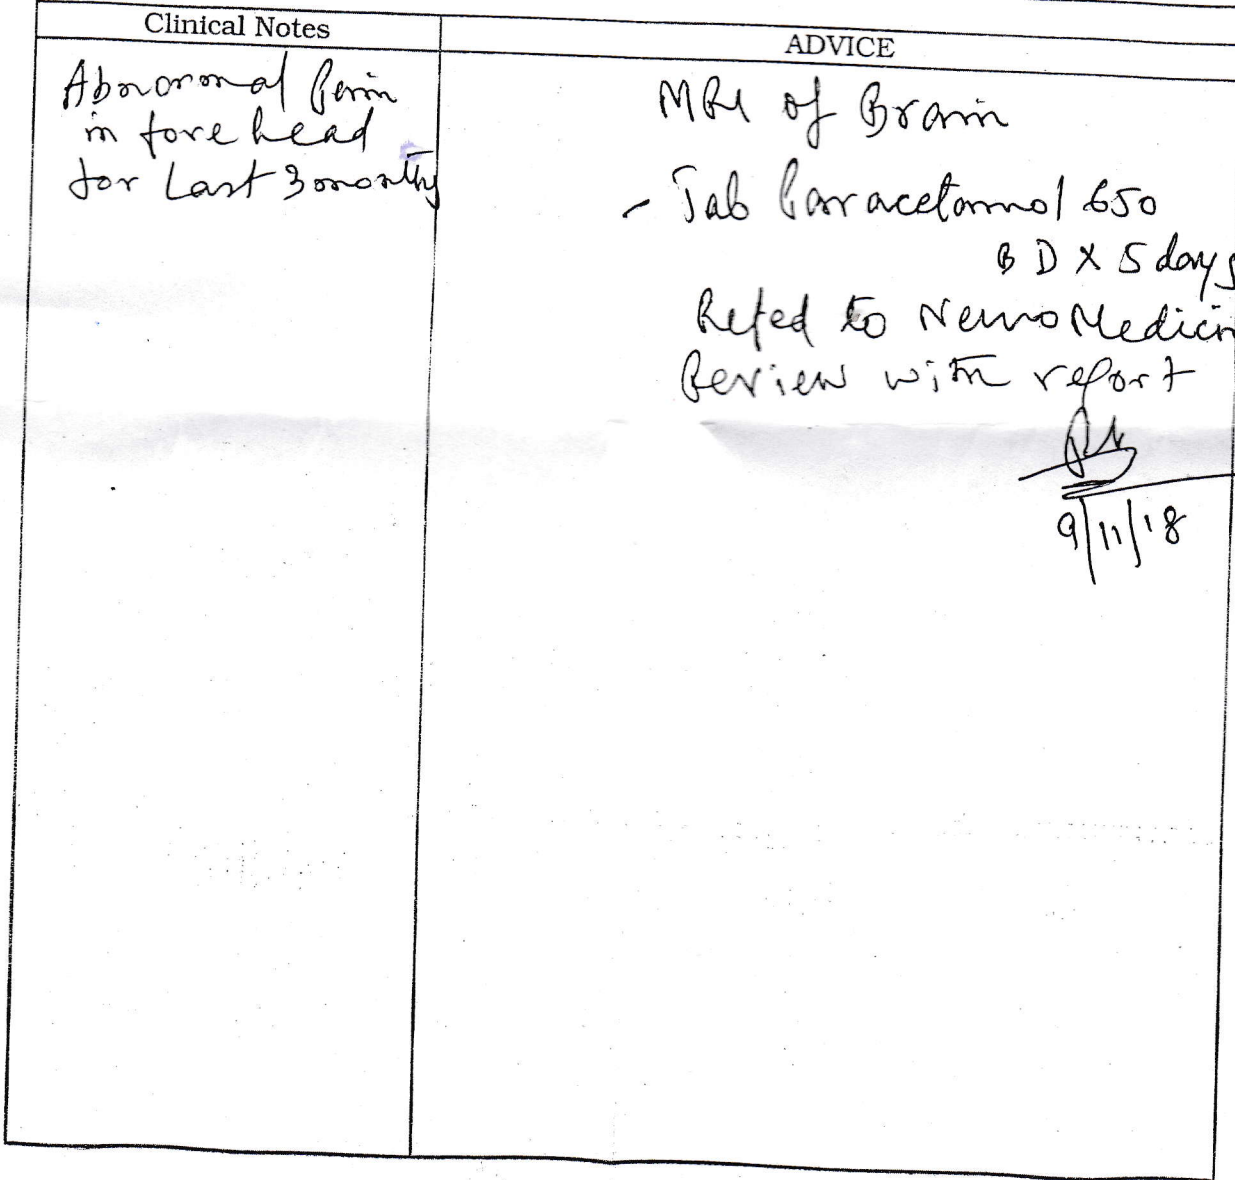 Clinical Notes
Abnoromal Pain
in fore head
for Last 3 months
ADVICE
MRI of Brain
- Tab Paracetamol 650
BD X 5 days
Refed to Neuro Medicin
Review with report
9/11/18